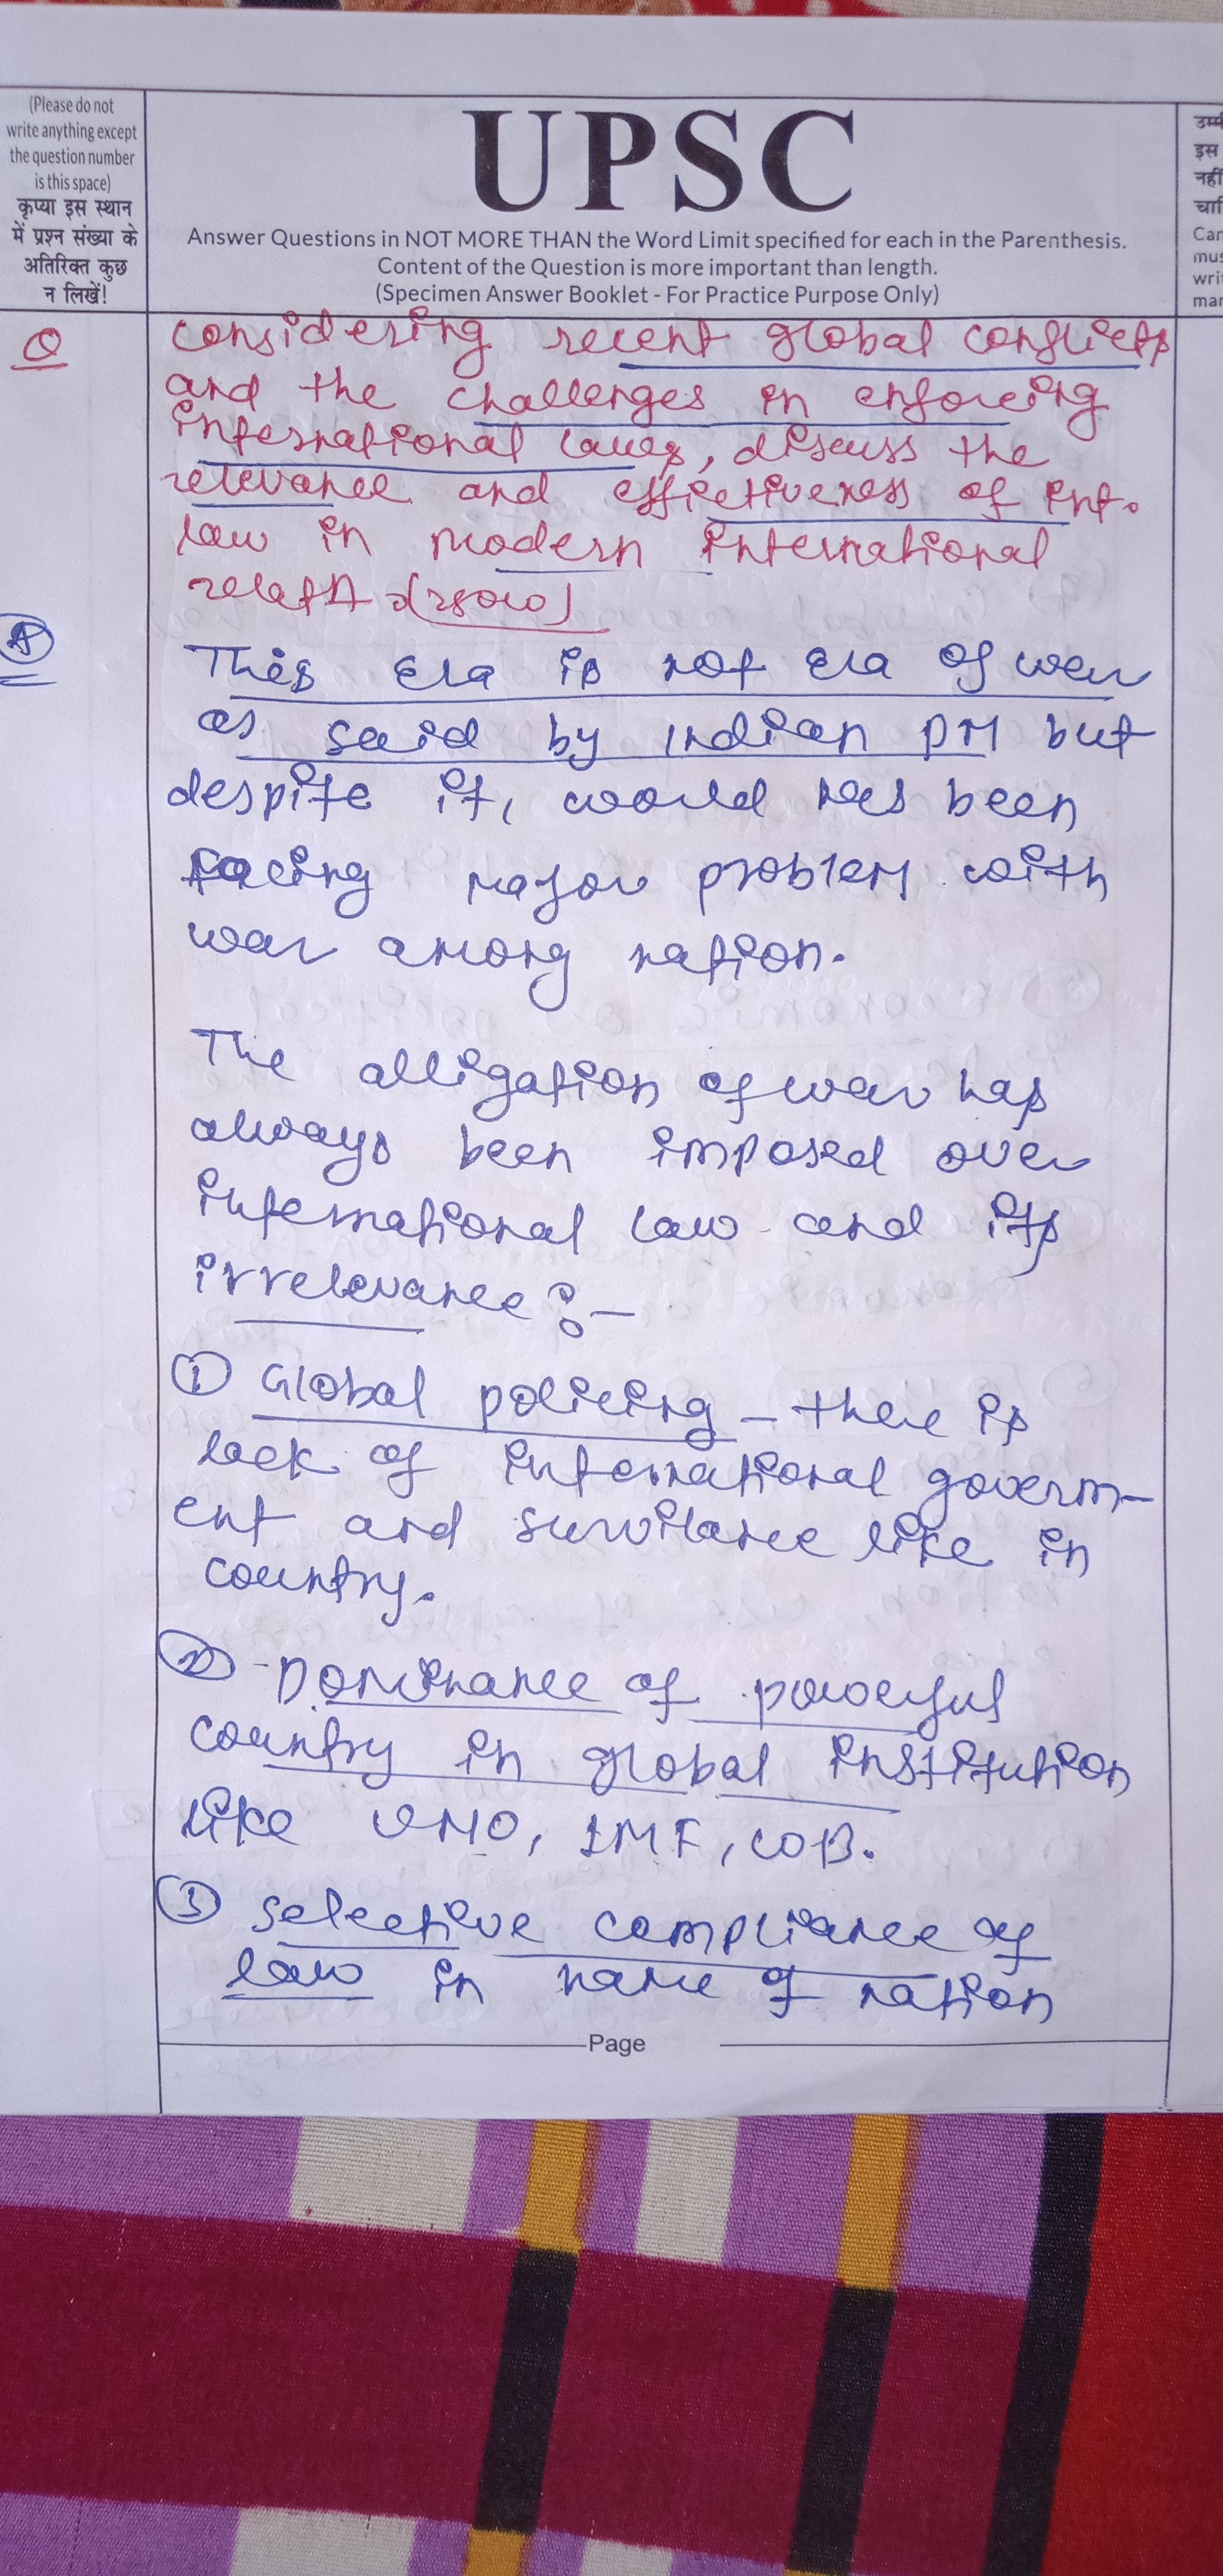 (Please do not
write anything except
the question number
is this space)
कृप्या इस स्थान
में प्रश्न संख्या के
अतिरिक्त कुछ
न लिखें!
UPSC
Answer Questions in NOT MORE THAN the Word Limit specified for each in the Parenthesis.
Content of the Question is more important than length.
(Specimen Answer Booklet - For Practice Purpose Only)
उम्मी
इस
नहीं
चाहि
Can
mus
writ
mar
Q
considering recent global conflicts
and the challenges in enforcing
international laws, discuss the
relevance and effictiveness of int.
law in modern international
(250w)
A
This Era is not Era of war
as said by Indian PM but
despite it, world has been
facing major problem with
war among nation.
The alligation of war has
always been imposed over
international law and its
irrelevance :-
① Global policing - there is
lack of international governm-
ent and survilance like in
country.
② Dominance of powerful
country in global institution
like UNO, IMF, WB.
③ selective compliance of
law in name of nation
Page